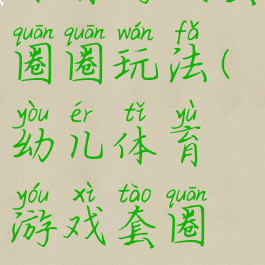 quān quān wán fǎ
圈圈玩法(
yòu ér tǐ yù
幼儿体育
yóu xì tào quān
游戏套圈